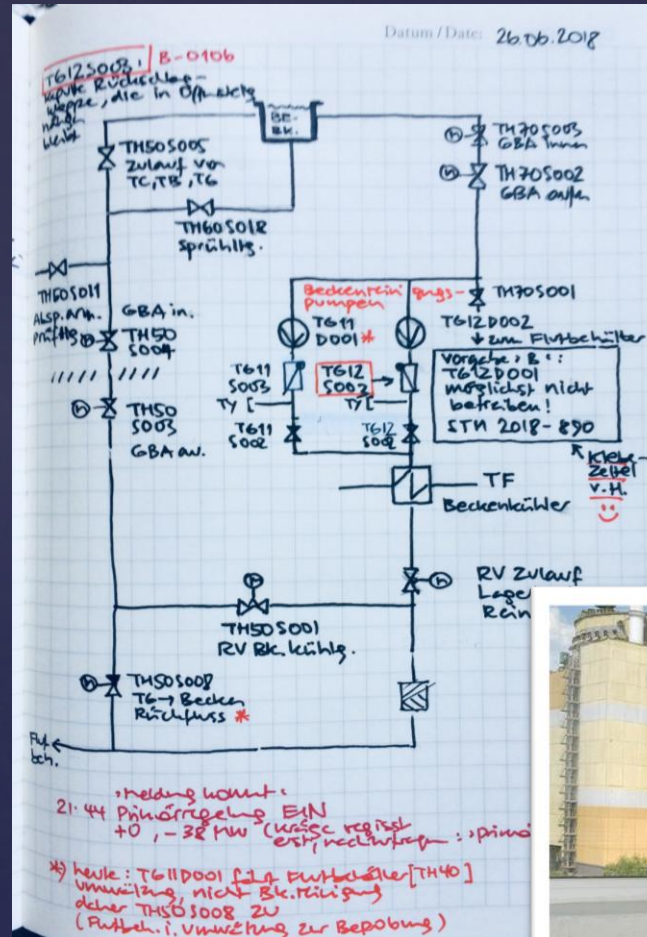 Datum/Date: 26.06.2018
TG12S003: B-0106
kaputte Rückschlag-
klappe, die in Öffn.stellg
hängen
bleibt
BE-
BK.
TH50S005
Zulauf von
TC, TB, TG
TH60S018
Sprühltg.
TH70S003
GBA innen
TH70S002
GBA außen
TH50S011
Absp.arm.
Prüfltg
GBA in.
TH50
S004
TH50
S003
GBA au.
Beckenreinigungs-
pumpen
TH70S001
TG11
D001 *
TG12D002
zum Flutbehälter
TG11
S003
TG12
S003
TY
TY
TG11
S002
TG12
S002
Vorgabe "B":
TG12D001
möglichst nicht
betreiben!
STM 2018-890
Klebe-
Zettel
v. M.
TF
Beckenkühler
RV Zulauf
Lage
Rein
TH50S001
RV Bk.kühlg.
TH50S008
TG → Becken
Rückfluss *
Flut
beh.
Meldung kommt:
21:44 Primärregelung EIN
+0, -38 MW
*) heute: TG11D001 fährt Flutbehälter [TH40]
Umwälzung, nicht Bk.reinigung
daher TH50S008 ZU
(Flutbeh. i. Umwälzung zur Beprobung)